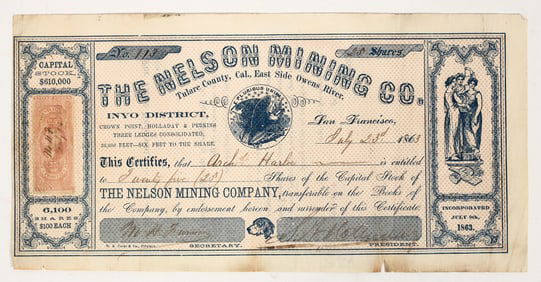 No. 113
25 Shares.
CAPITAL
STOCK,
$610,000
THE NELSON MINING CO.
Tulare County, Cal., East Side Owens River.
INYO DISTRICT,
CROWN POINT, HOLLADAY & PERKINS
THREE LEDGES CONSOLIDATED,
FEET—SIX FEET TO THE SHARE.
E PLURIBUS UNUM
San Francisco,
July 23d 1863
This Certifies, that is entitled
to Twenty five (25) Shares of the Capital Stock of
THE NELSON MINING COMPANY, transferable on the Books of
the Company, by endorsement hereon and surrender of this Certificate.
6,100
SHARES
$100 EACH
SECRETARY.
PRESIDENT.
INCORPORATED
JULY 9th,
1863.